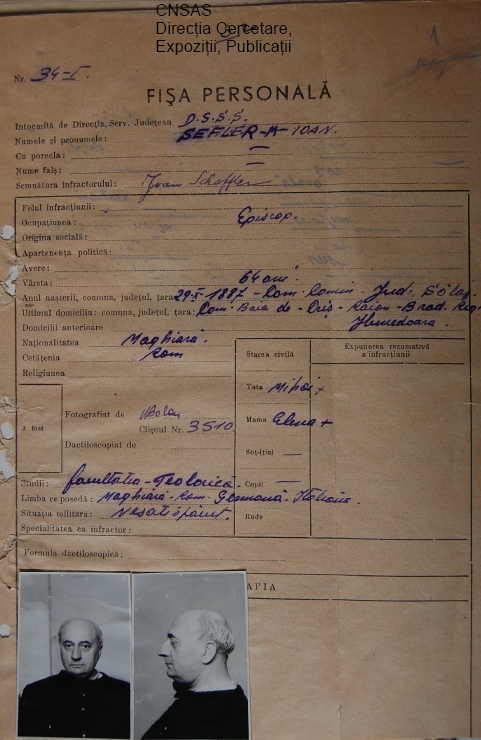 CNSAS
Direcția Cercetare,
Expoziții, Publicații
1
Nr. 34-I.
FIŞA PERSONALĂ
Intocmită de Direcția, Serv. Județean D.S.S.S.
Numele şi pronumele: SEFLER-A-IOAN.
Cu porecla: —
Nume fals: —
Semnătura infractorului: Ivan Scheffler
Felul infracțiunii:
Ocupațiunea: Episcop.
Origina socială:
Apartenența politică:
Avere:
Vârsta: 64 ani
Anul naşterii, comuna, județul, țara: 29-X-1887-Com. Camin-Jud. Sălaj
Ultimul domiciliu: comuna, județul, țara: Com. Baia de-Criş-Raion-Brad. Reg.
Hunedoara.
Domicilii anterioare
Naționalitatea Maghiară.
Cetățenia Rom
Religiunea
Starea civilă
Tata Mihai +
Mama Elena +
Soț-(ția) —
Copii —
Rude
Expunerea rezumativă
a infracțiunii
A fost
Fotografiat de
Clişeul Nr. 3510
Dactiloscopiat de
Studii: facultatia-Teologică.
Limba ce posedă: Maghiară-Rom. Germană. Italiana.
Situația militară: Nesatisfăcut.
Specialitatea ca infractor:
Formula dactiloscopică:
AFIA